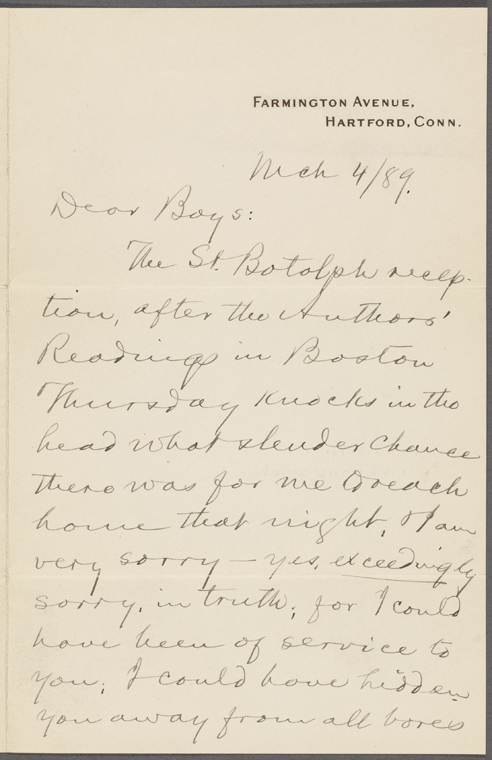 FARMINGTON AVENUE,
HARTFORD, CONN.
Mch 4/89.
Dear Boys:
The St. Botolph recep-
tion, after the Authors'
Readings in Boston
Thursday knocks in the
head what slender chance
there was for me to reach
home that night. I am
very sorry — yes, exceedingly
sorry, in truth; for I could
have been of service to
you; I could have hidden
you away from all bores